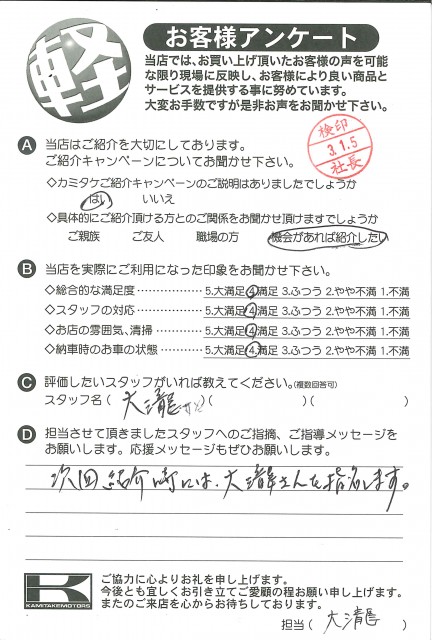 軽
お客様アンケート
当店では、お買い上げ頂いたお客様の声を可能
な限り現場に反映し、お客様により良い商品と
サービスを提供する事に努めています。
大変お手数ですが是非お声をお聞かせ下さい。
検印
3.1.5
社長
A 当店はご紹介を大切にしております。
ご紹介キャンペーンについてお聞かせ下さい。
◇カミタケご紹介キャンペーンのご説明はありましたでしょうか
はい いいえ
◇具体的にご紹介頂ける方とのご関係をお聞かせ頂けますでしょうか
ご親族 ご友人 職場の方 機会があれば紹介したい
B 当店を実際にご利用になった印象をお聞かせ下さい。
◇総合的な満足度 ・・・・・・・・・・・・ 5.大満足 4.満足 3.ふつう 2.やや不満 1.不満
◇スタッフの対応 ・・・・・・・・・・・・ 5.大満足 4.満足 3.ふつう 2.やや不満 1.不満
◇お店の雰囲気、清掃 ・・・・・・・・ 5.大満足 4.満足 3.ふつう 2.やや不満 1.不満
◇納車時のお車の状態 ・・・・・・・・ 5.大満足 4.満足 3.ふつう 2.やや不満 1.不満
C 評価したいスタッフがいれば教えてください。(複数回答可)
スタッフ名 ( 大瀧さん )( )( )
D 担当させて頂きましたスタッフへのご指摘、ご指導メッセージを
お願いします。応援メッセージもぜひお願いします。
次回紹介時には、大瀧さんを指名します。
K
KAMITAKEMOTORS
ご協力に心よりお礼を申し上げます。
今後とも宜しくお引き立てご愛顧の程お願い申し上げます。
またのご来店を心からお待ちしております。
担当 ( 大瀧 )